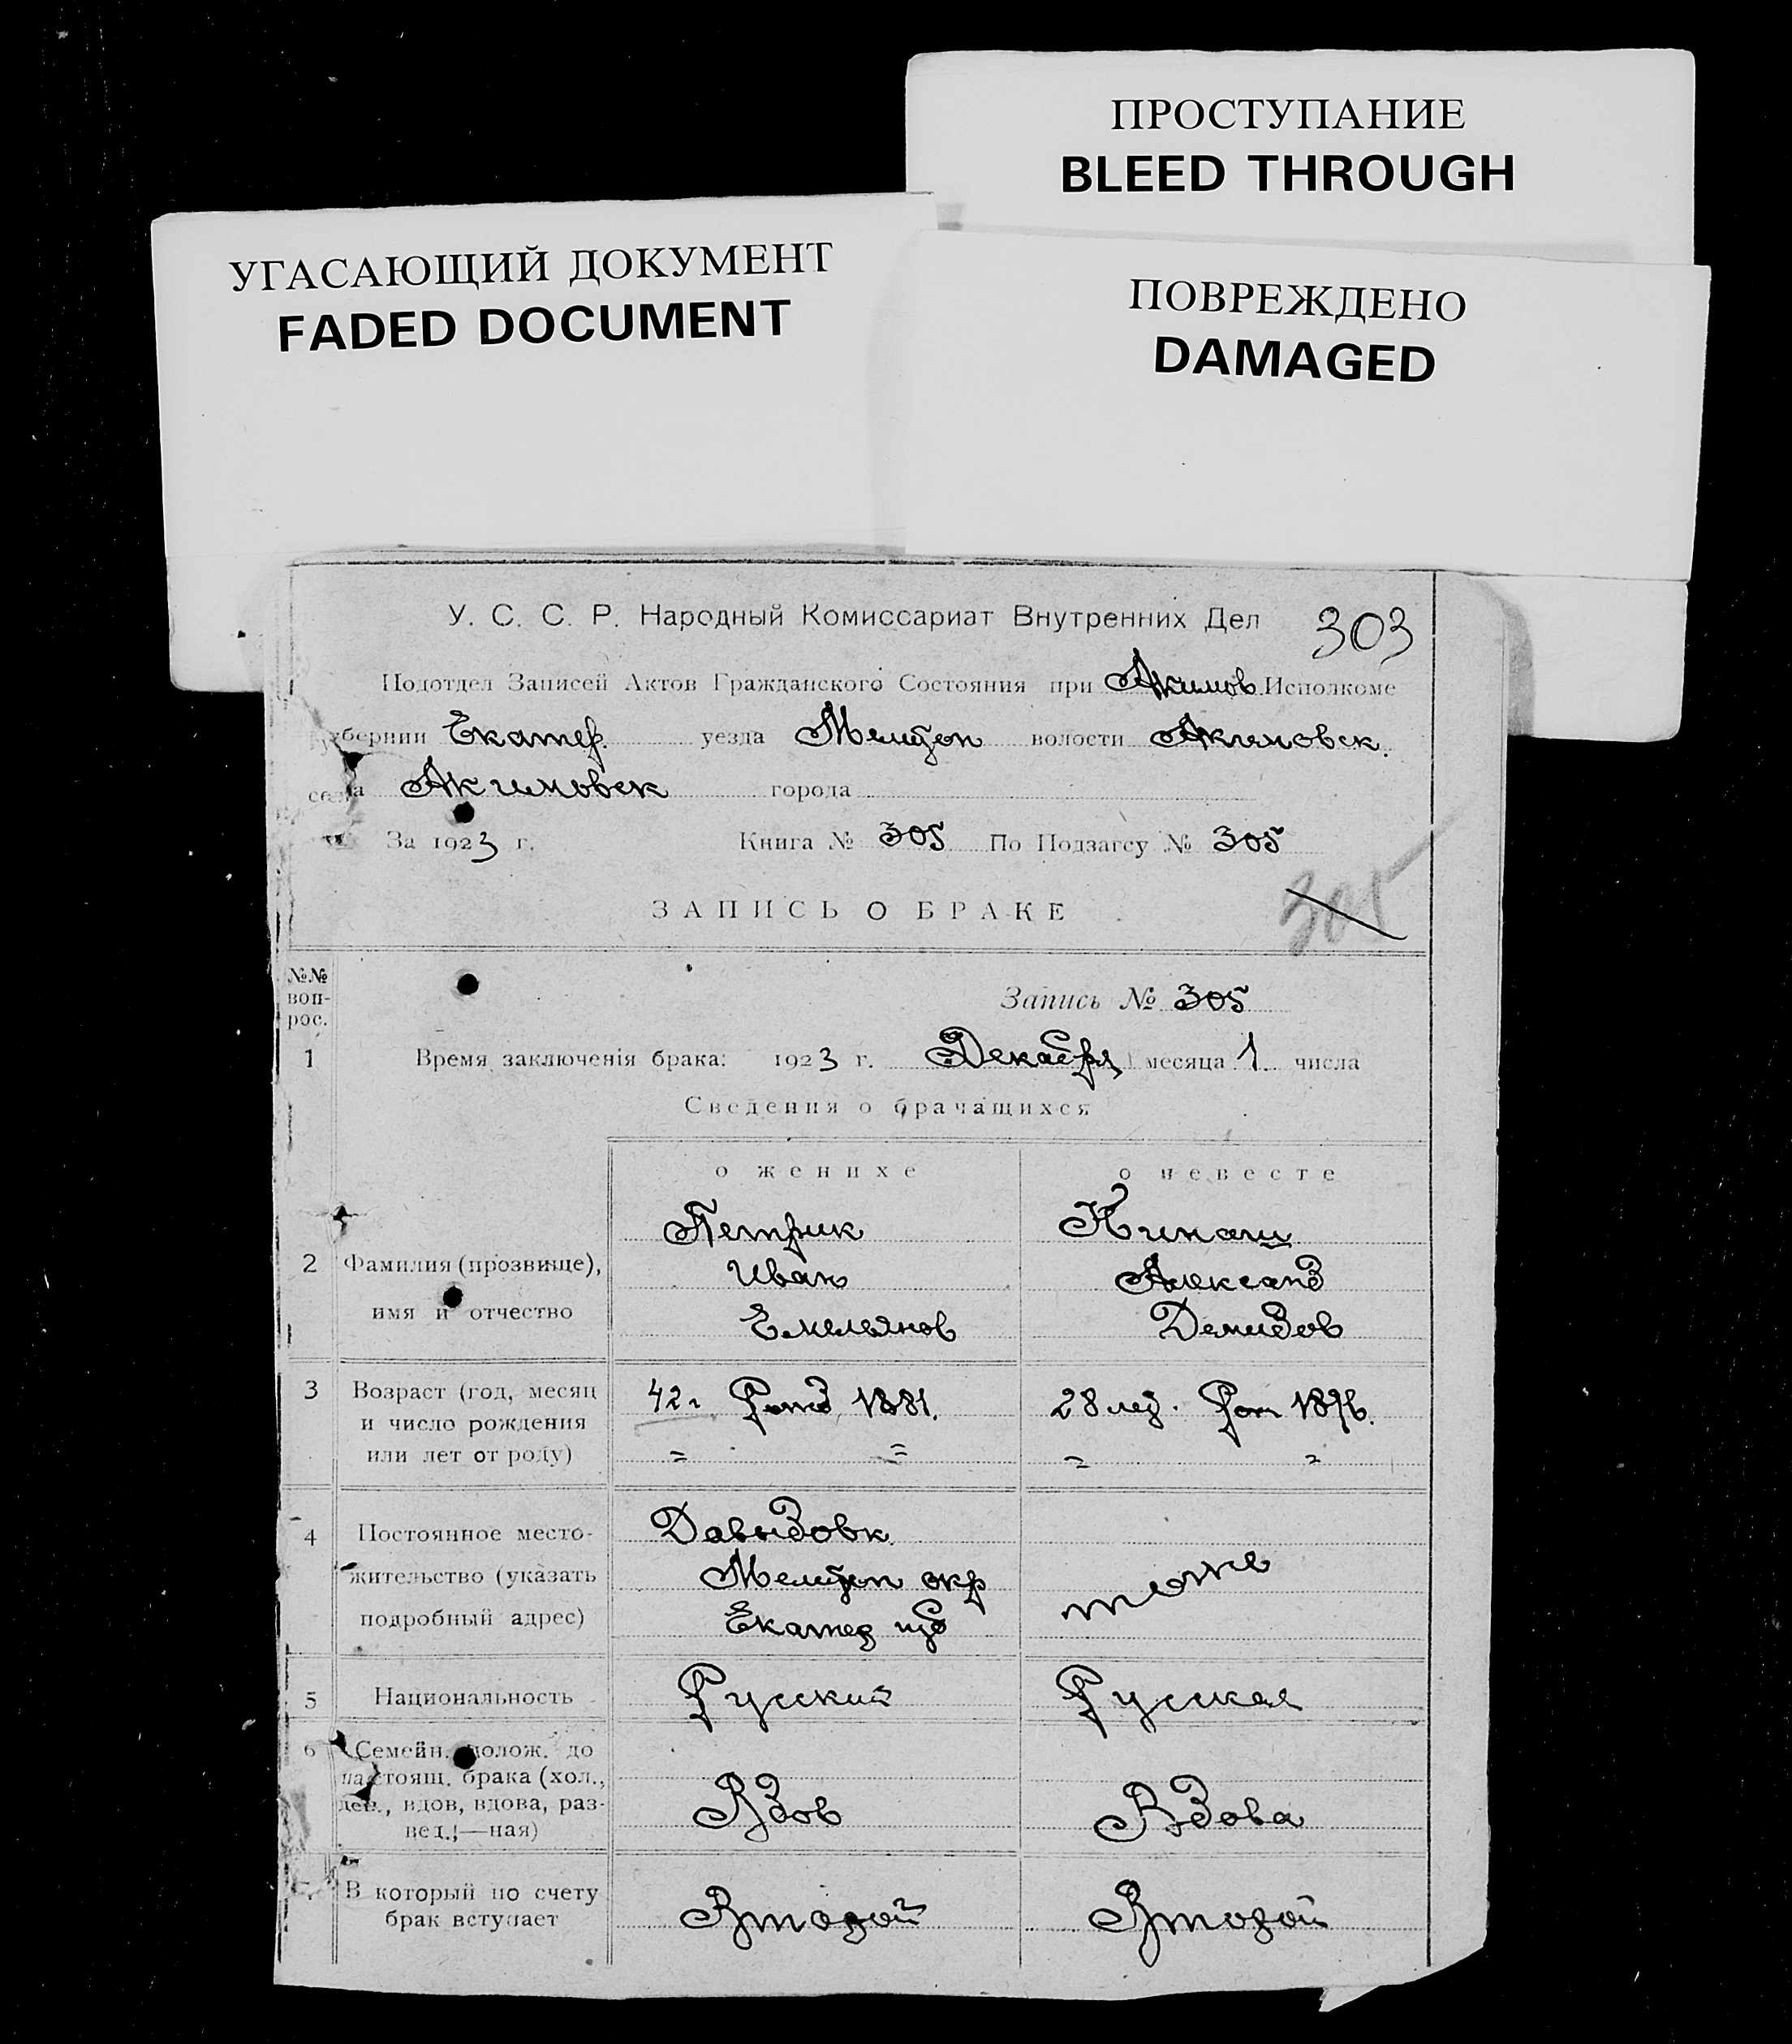 ПРОСТУПАНИЕ
BLEED THROUGH
УГАСАЮЩИЙ ДОКУМЕНТ
FADED DOCUMENT
ПОВРЕЖДЕНО
DAMAGED
У. С. С. Р. Народный Комиссариат Внутренних Дел 303
Подотдел Записей Актов Гражданского Состояния при Акимов. Исполкоме
губернии Екатер. уезда Мелитоп волости Акимовск.
села Акимовск города
За 1923 г. Книга № 305 По Подзагсу № 305
ЗАПИСЬ О БРАКЕ 305
№№ воп-рос.
Запись № 305
1 Время заключенія брака: 1923 г. Декабря месяца 1 числа
Сведения о брачащихся
о женихе о невесте
Петрик Кинаш
2 Фамилия (прозвище), Иван Александ
имя и отчество Емельянов Демидов
3 Возраст (год, месяц 42 г. Рожд 1881. 28 лет. Рож 1896.
и число рождения
или лет от роду) = = = =
4 Постоянное место- Давыдовк.
жительство (указать Мелитоп окр тоже
подробный адрес) Екатер губ
5 Национальность Русский Русская
6 Семейн. полож. до
настоящ. брака (хол.,
дев., вдов, вдова, раз- Вдов Вдова
вед.;—ная)
В который по счету Второй Второй
брак вступает